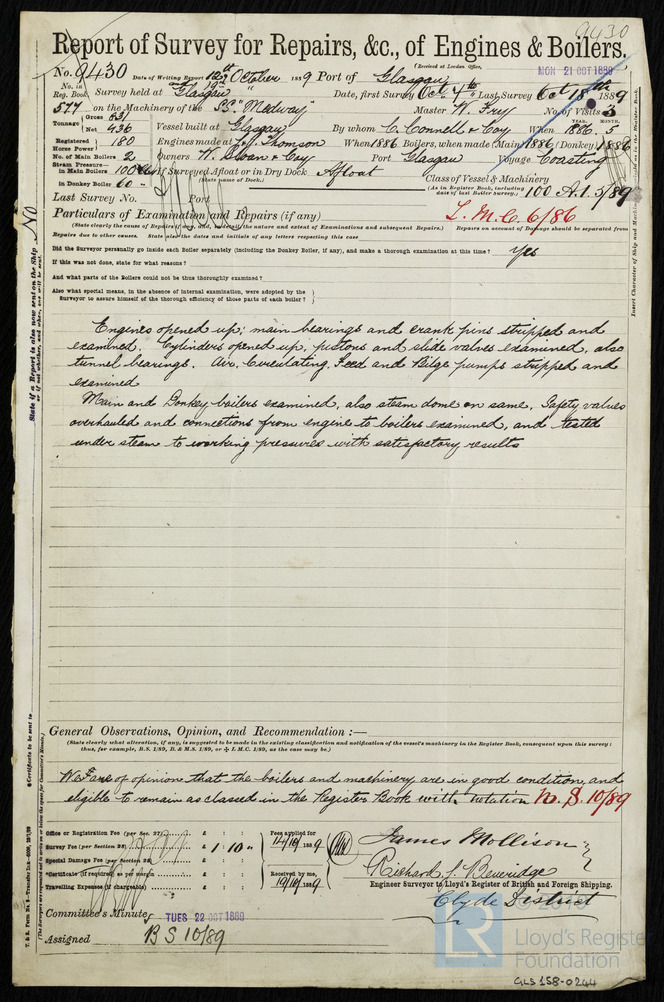 9430
Report of Survey for Repairs, &c., of Engines & Boilers.
(Received at London Office, MON 21 OCT 1889
No. 9430 Date of Writing Report 12th October 1889 Port of Glasgow
No. in Reg. Book. Survey held at Glasgow Date, first Survey Oct 4th Last Survey Oct 18th 1889
577 on the Machinery of the S.S. "Medway" Master W. Fry No. of Visits 3
Tonnage Gross 631 Net 436 Vessel built at Glasgow By whom C. Connell & Coy When 1886. 5 YEAR. MONTH.
Registered Horse Power 180 Engines made at J. & J. Thomson When 1886 Boilers, when made (Main) 1886 (Donkey) 1886
No. of Main Boilers 2 Owners W. Sloan & Coy Port Glasgow Voyage Coasting
Steam Pressure— in Main Boilers 100 lbs If Surveyed Afloat or in Dry Dock Afloat Class of Vessel & Machinery
(State name of Dock.) (As in Register Book, including date of last Boiler Survey.) 100 A.1. 5/89
in Donkey Boiler 60 "
Last Survey No. Port
Particulars of Examination and Repairs (if any) L.M.C. 6/86
(State clearly the cause of Repairs if any, and, besides, the nature and extent of Examinations and subsequent Repairs.) Repairs on account of Damage should be separated from
Repairs due to other causes. State also the dates and initials of any letters respecting this case
Did the Surveyor personally go inside each Boiler separately (including the Donkey Boiler, if any), and make a thorough examination at this time? Yes
If this was not done, state for what reasons?
And what parts of the Boilers could not be thus thoroughly examined?
Also what special means, in the absence of internal examination, were adopted by the
Surveyor to assure himself of the thorough efficiency of those parts of each boiler?
Engines opened up; main bearings and crank pins stripped and
examined. Cylinders opened up, pistons and slide valves examined, also
tunnel bearings. Air, Circulating, Feed and Bilge pumps stripped and
examined
Main and Donkey boilers examined, also steam dome on same. Safety valves
overhauled and connections from engine to boilers examined, and tested
under steam to working pressures with satisfactory results
General Observations, Opinion, and Recommendation :—
(State clearly what alteration, if any, is suggested to be made in the existing classification and notification of the vessel's machinery in the Register Book, consequent upon this survey:
thus, for example, B.S. 1/89, B.& M.S. 1/89, or L.M.C. 1/89, as the case may be.)
We are of opinion that the boilers and machinery are in good condition, and
eligible to remain as classed in the Register Book with notation B.S. 10/89
Office or Registration Fee (per Sec. 27) £ : :
Survey Fee (per Section 28) £ 1 : 10 "
Special Damage Fee (per Section 28) £ : :
*Certificate (if required) as per margin £ : :
Travelling Expenses (if chargeable) £ : :
Fees applied for
14/10/1889
Received by me,
19/10/1889
James Mollison
Richard J. Beveridge
Engineer Surveyor to Lloyd's Register of British and Foreign Shipping.
Clyde District
Committee's Minute TUES 22 OCT 1889
Assigned B S 10/89
State if a Report is also now sent on the Ship No
or if not whether, and when, one will be sent.
Insert Character of Ship and Machinery
*Certificate to be sent to
LR
© 2019
Lloyd's Register
Foundation
GLS 158-0244